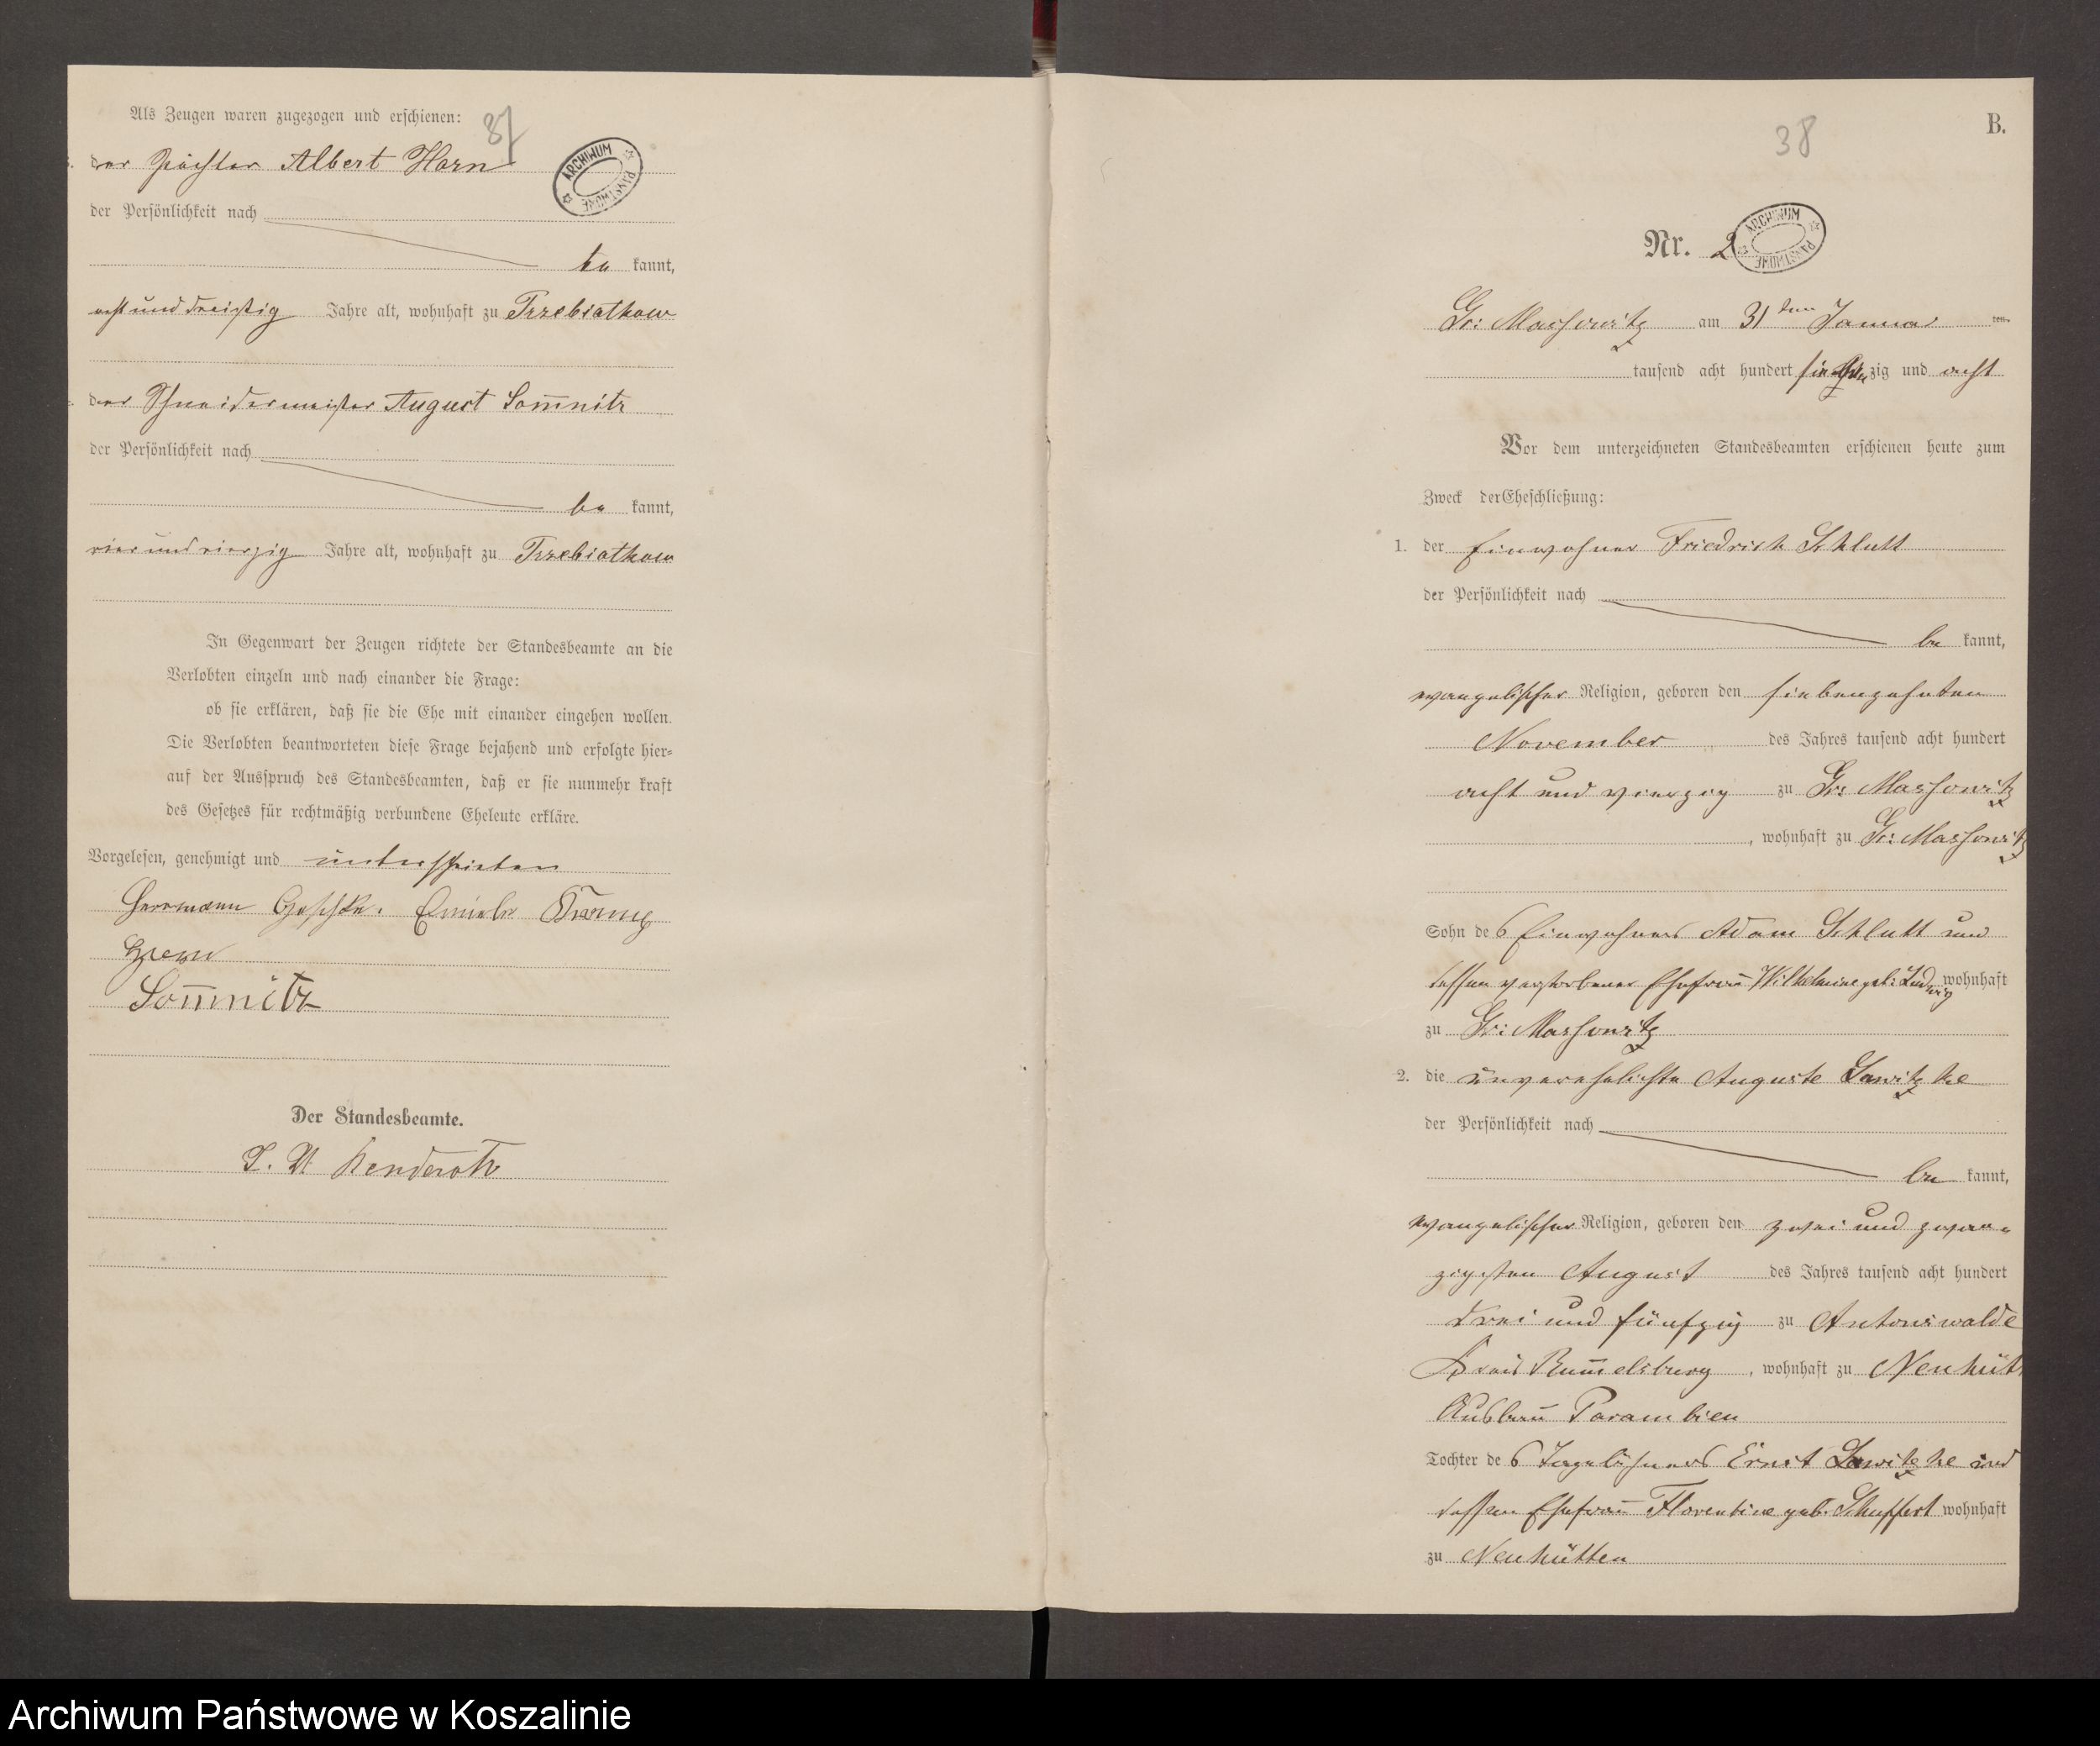 Als Zeugen waren zugezogen und erschienen:
37
der Pächter Albert Horn
ARCHIWUM PAŃSTWOWE
der Persönlichkeit nach
be kannt,
acht und dreißig Jahre alt, wohnhaft zu Trzebiatkow
der Schneidermeister August Som̅nitz
der Persönlichkeit nach
be kannt,
vier und vierzig Jahre alt, wohnhaft zu Trzebiatkow
In Gegenwart der Zeugen richtete der Standesbeamte an die
Verlobten einzeln und nach einander die Frage:
ob sie erklären, daß sie die Ehe mit einander eingehen wollen.
Die Verlobten beantworteten diese Frage bejahend und erfolgte hier=
auf der Ausspruch des Standesbeamten, daß er sie nunmehr kraft
des Gesetzes für rechtmäßig verbundene Eheleute erkläre.
Vorgelesen, genehmigt und unterschrieben
Herrmann
Som̅nitz
Der Standesbeamte.
B.
38
Nr. 2
ARCHIWUM PAŃSTWOWE
Gr: Massowitz am 31 ten Januar ten
tausend acht hundert sieben zig und acht
Vor dem unterzeichneten Standesbeamten erschienen heute zum
Zweck der Eheschließung:
1. der Einwohner Friedrich Schlutt
der Persönlichkeit nach
be kannt,
evangelischer Religion, geboren den siebenzehnten
November des Jahres tausend acht hundert
acht und vierzig zu Gr: Massowitz
, wohnhaft zu Gr: Massowitz
Sohn des Einwohners Adam Schlutt und
dessen verstorbener Ehefrau Wilhelmine geb: Ludwig wohnhaft
zu Gr: Massowitz
2. die unverehelichte Auguste Lawitzke
der Persönlichkeit nach
be kannt,
evangelischer Religion, geboren den zwei und zwan=
zigsten August des Jahres tausend acht hundert
drei und fünfzig zu Antonswalde
Kreis Rum̅elsburg, wohnhaft zu Neuhütt
Ausbau Parambien
Tochter des Tagelöhners Ernst Lawitzke und
dessen Ehefrau Florentine geb: wohnhaft
zu Neuhütten
Archiwum Państwowe w Koszalinie